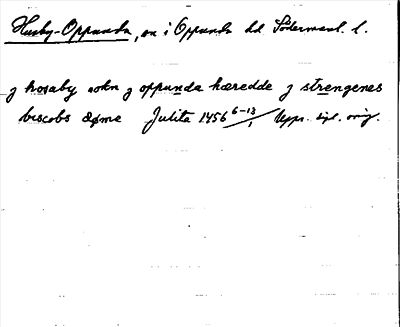 Husby-Oppunda, sn i Oppunda hd Södermanl. l.
j hosaby sokn j oppunda hæredde j strengenes
biscobs døme Julita 1456 6-13/1 Uppr. dipl. orig.